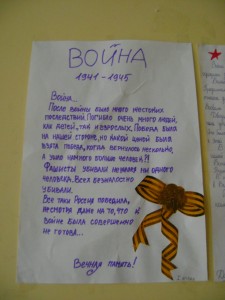 ВОЙНА
1941-1945
Война...
После войны было много жестоких
последствий. Погибло очень много людей,
как детей, так и взрослых. Победа была
на нашей стороне, но какой ценой была
взята победа, когда вернулось несколько,
а ушло намного больше человек?!
Фашисты убивали не одного
человека. Всех безжалостно
убивали.
Все таки Россия победила,
несмотря даже на то, что к
войне была совершенно
не готова...
Вечная память!